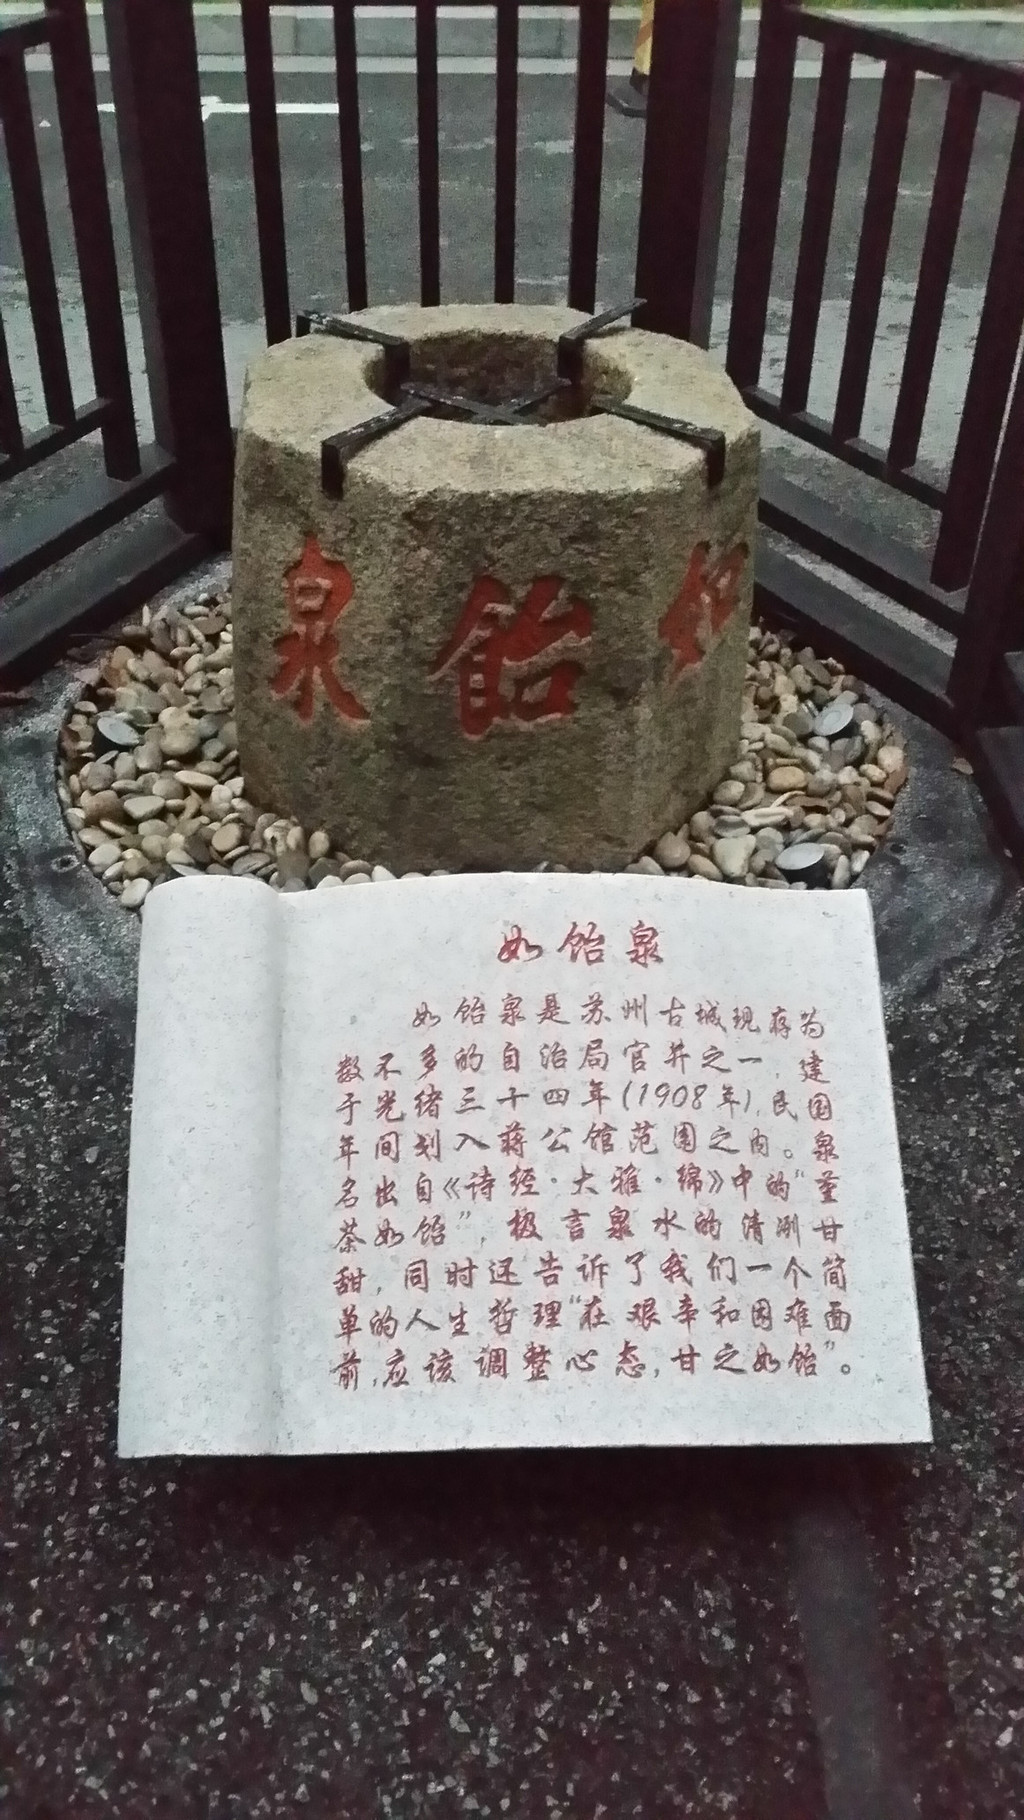 如飴泉
如饴泉
如饴泉是苏州古城现存为
数不多的自治局官井之一,建
于光绪三十四年(1908年),民国
年间划入蒋公馆范围之内。泉
名出自《诗经·大雅·绵》中的“堇
荼如饴”,极言泉水的清冽甘
甜,同时还告诉了我们一个简
单的人生哲理“在艰辛和困难面
前,应该调整心态,甘之如饴”。